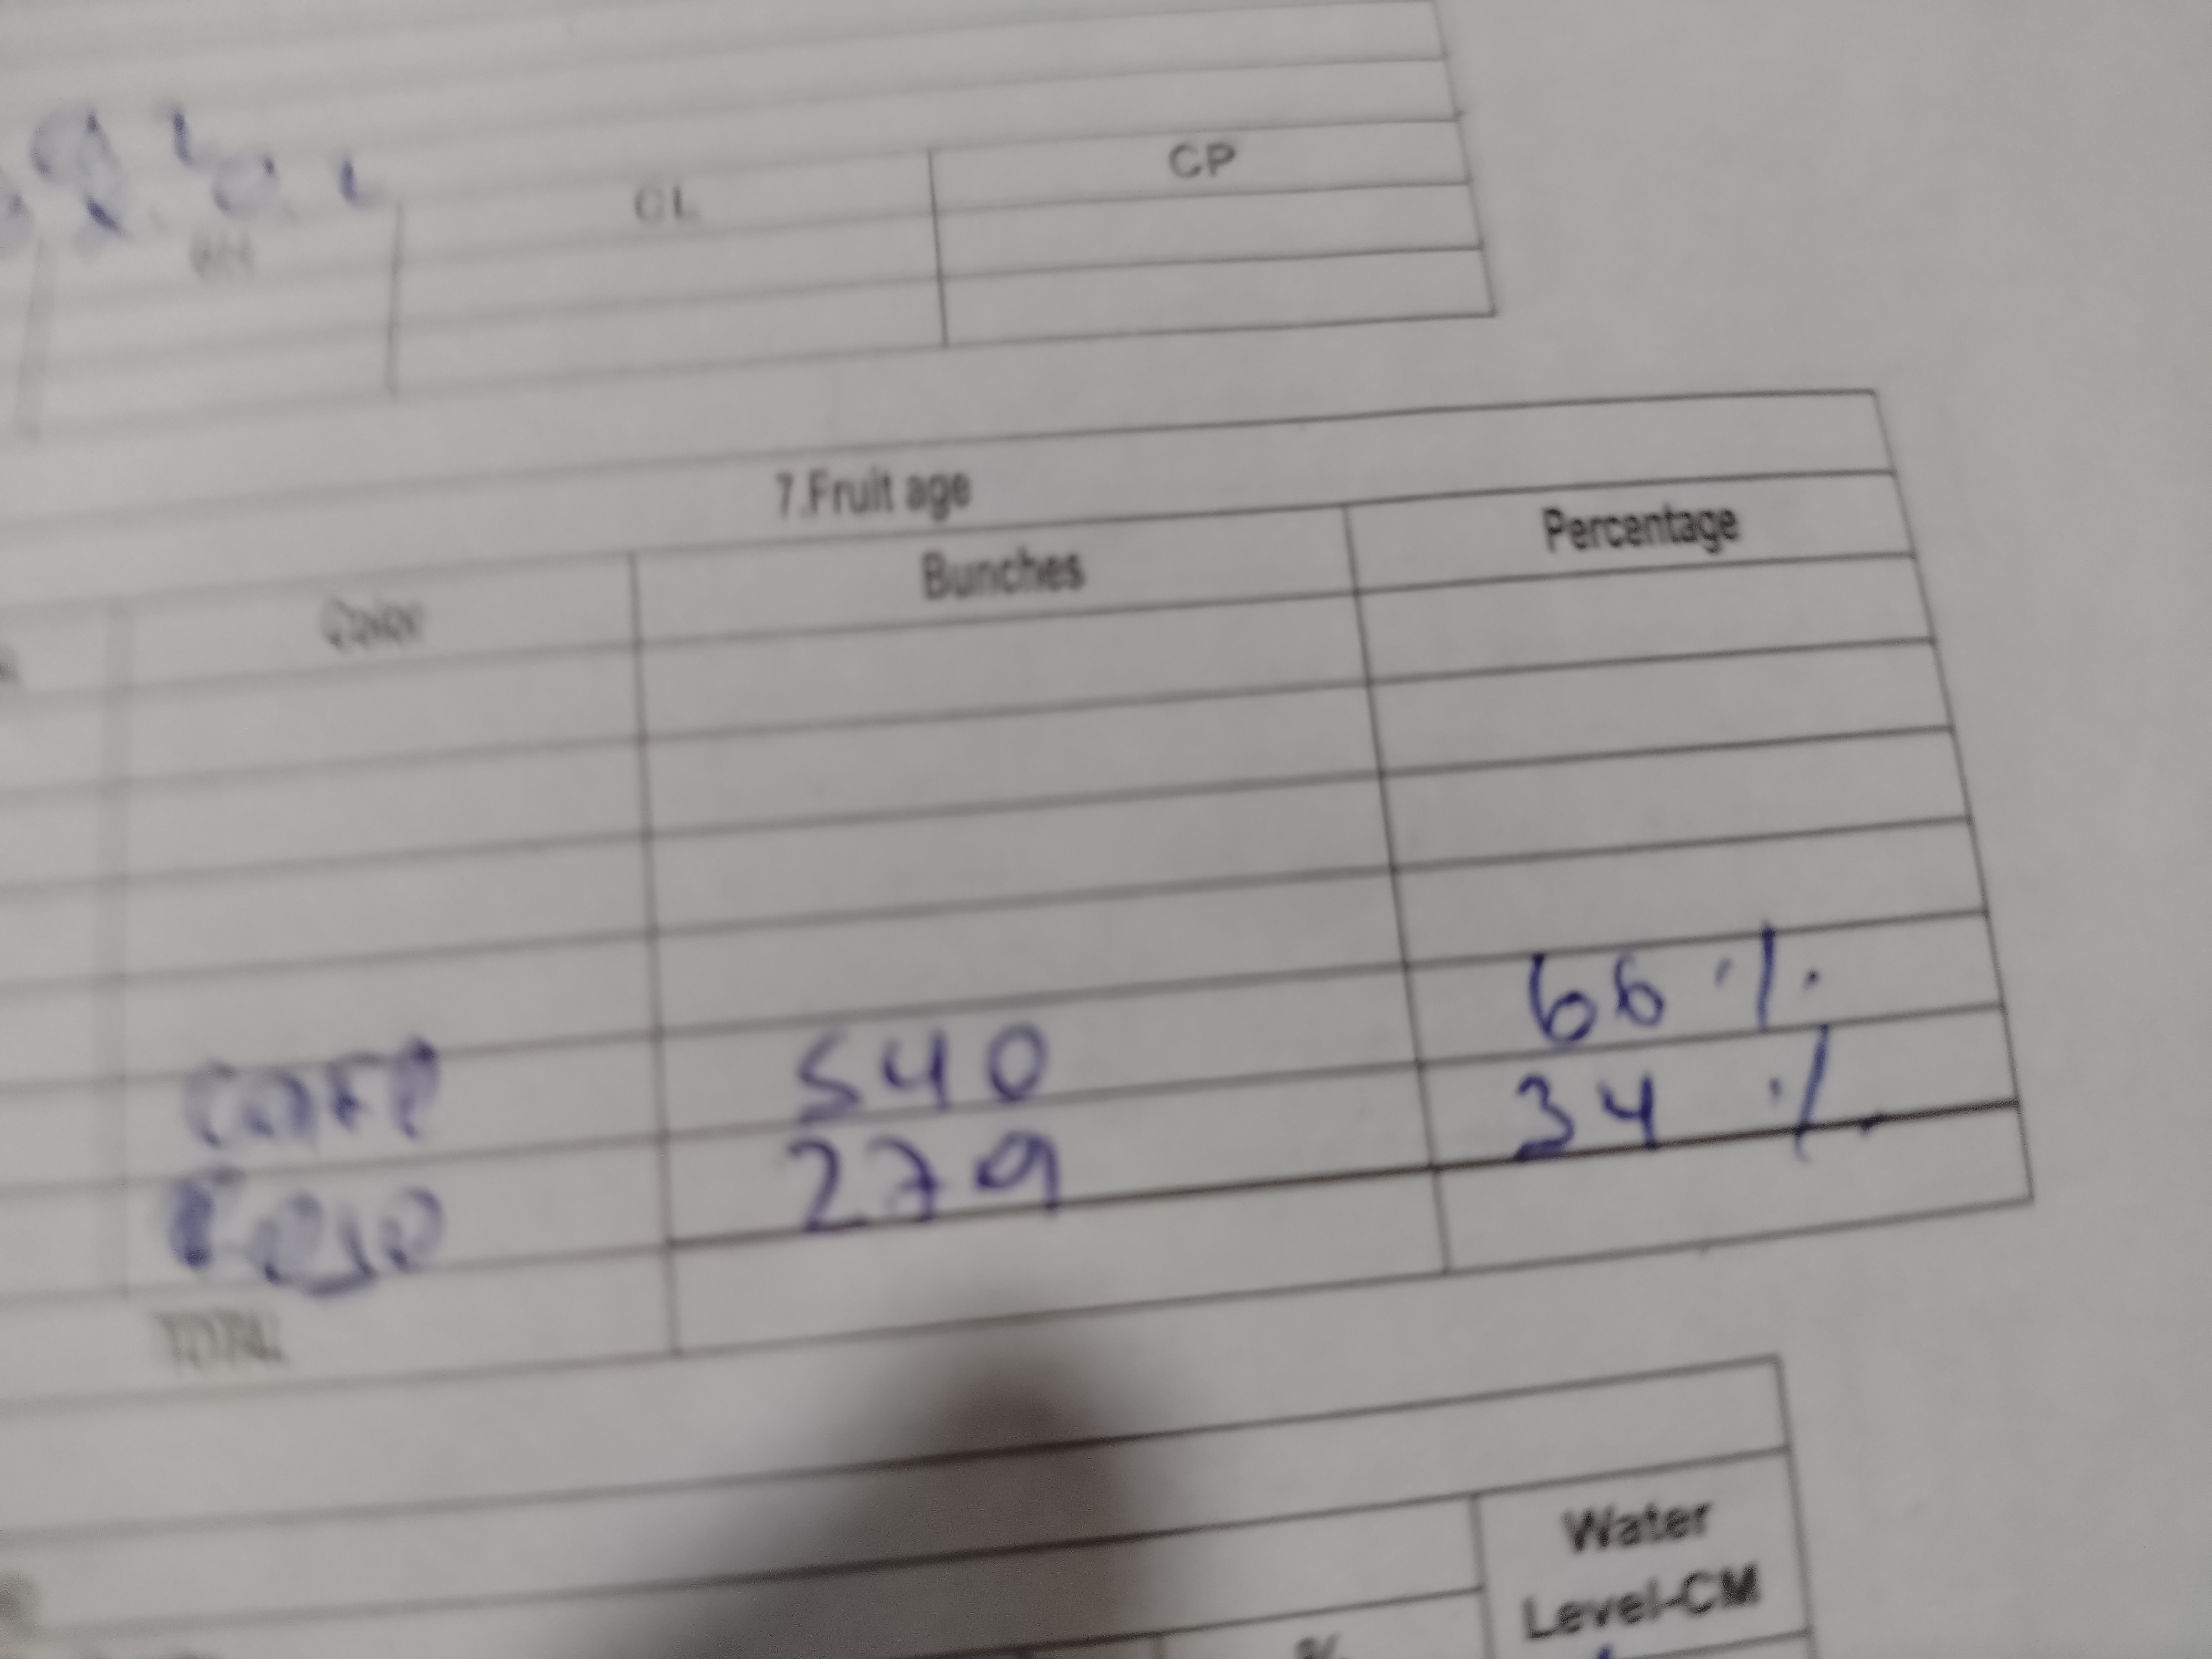 CL CP
7.Fruit age
Color Bunches Percentage
cafe 540 66 %
Rojo 279 34 %
TOTAL
Water
Level-CM
%